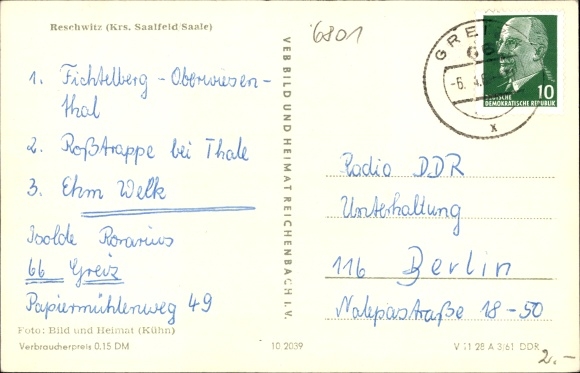 Reschwitz (Krs. Saalfeld/Saale)
6801
1. Fichtelberg - Oberwiesen-
thal
2. Roßtrappe bei Thale
3. Ehm Welk
Isolde Rorarius
66 Greiz
Papiermühlenweg 49
Foto: Bild und Heimat (Kühn)
Verbraucherpreis 0.15 DM
VEB BILD UND HEIMAT REICHENBACH I. V.
10 2039
GREIZ
-6. 4.6
x
10
DEUTSCHE
DEMOKRATISCHE REPUBLIK
Radio DDR
Unterhaltung
116 Berlin
Nalepastraße 18-50
V 11 28 A 3/61 DDR
2.-